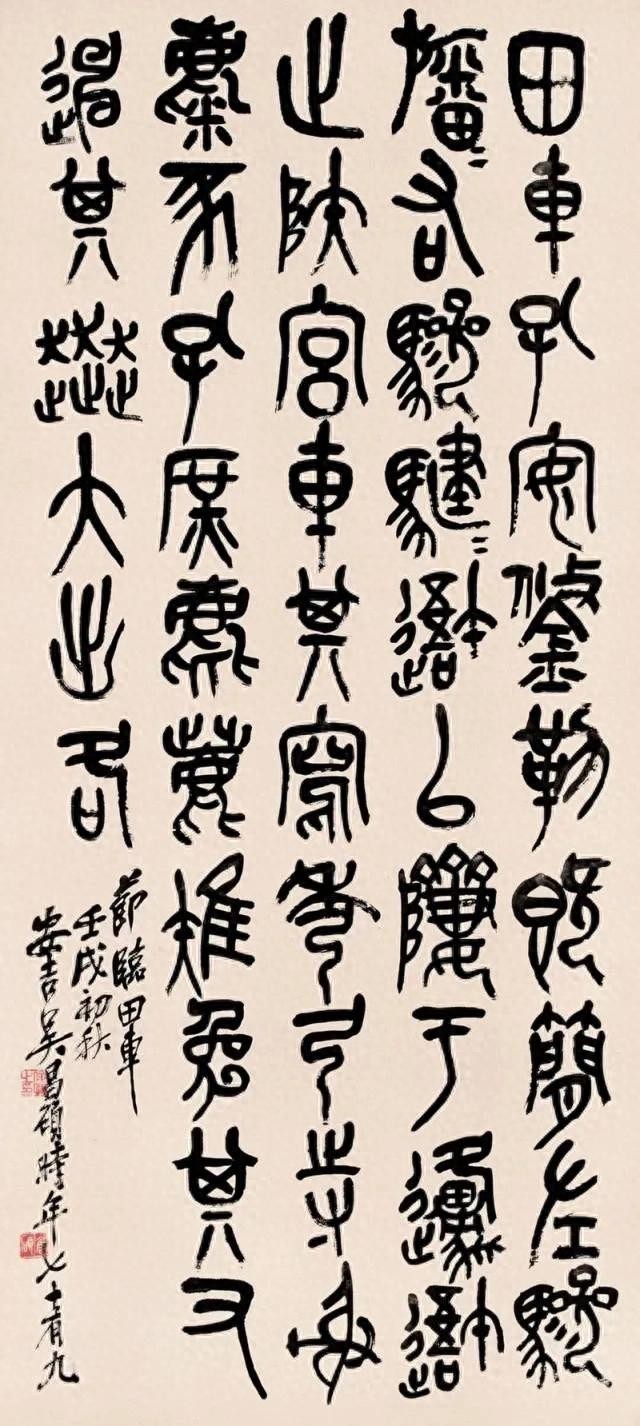 田車孔安鋚勒既簡左驂
旛=右驂騝=以隮于邍
止陝宮車其寫秀弓寺射
麋豕孔庶麀鹿雉兔其又
其奔大出各
節臨田車
壬戌初秋
安吉吳昌碩時年七十有九